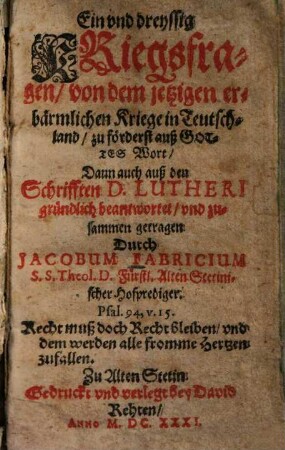 Ein vnd dreyssig
KRiegsfra-
gen/ von dem jetzigen er-
bärmlichen Kriege in Teutsch-
land/ zu förderst auß GOT-
TES Wort/
Dann auch auß den
Schrifften D. LUTHERI
gründlich beantwortet/ vnd zu-
sammen getragen
Durch
JACOBUM FABRICIUM
S. S. Theol. D. Fürstl. Alten Stetini-
scher Hofprediger.
Psal. 94, v. 15.
Recht muß doch Recht bleiben/ vnd
dem werden alle fromme Hertzen
zufallen.
Zu Alten Stetin
Gedruckt vnd verlegt bey David
Rehten/
ANNO M. DC. XXXI.